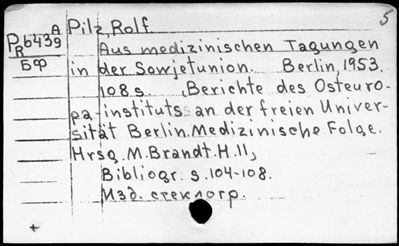 5
A Pilz, Rolf
PRb439 Aus medizinischen Tagungen
БФ in der Sowjetunion. Berlin, 1953.
108 s. , Berichte des Osteuro-
pa-instituts an der freien Univer-
sität Berlin. Medizinische Folge.
Hrsg. M. Brandt. H. 11,
Bibliogr. s. 104-108.
Изд. стеклогр.